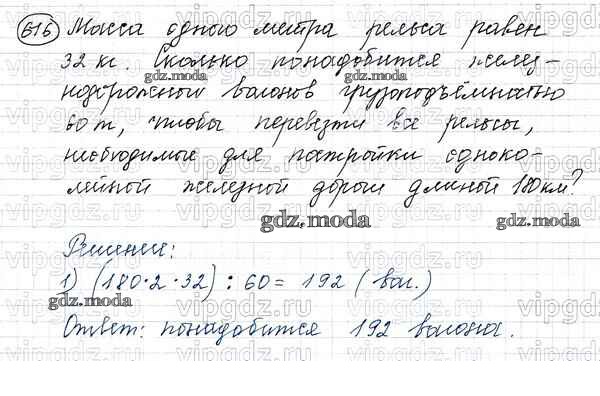 616 Масса одного метра рельса равен
32 кг. Сколько понадобится желез-
нодорожной вагонов грузоподъёмностью
60 т, чтобы перевезти все рельсы,
необходимые для постройки одноко-
лейной железной дороги длиной 180 км?
gdz.moda
Решение:
1) (180·2·32) : 60 = 192 (ваг.)
Ответ: понадобится 192 вагона.